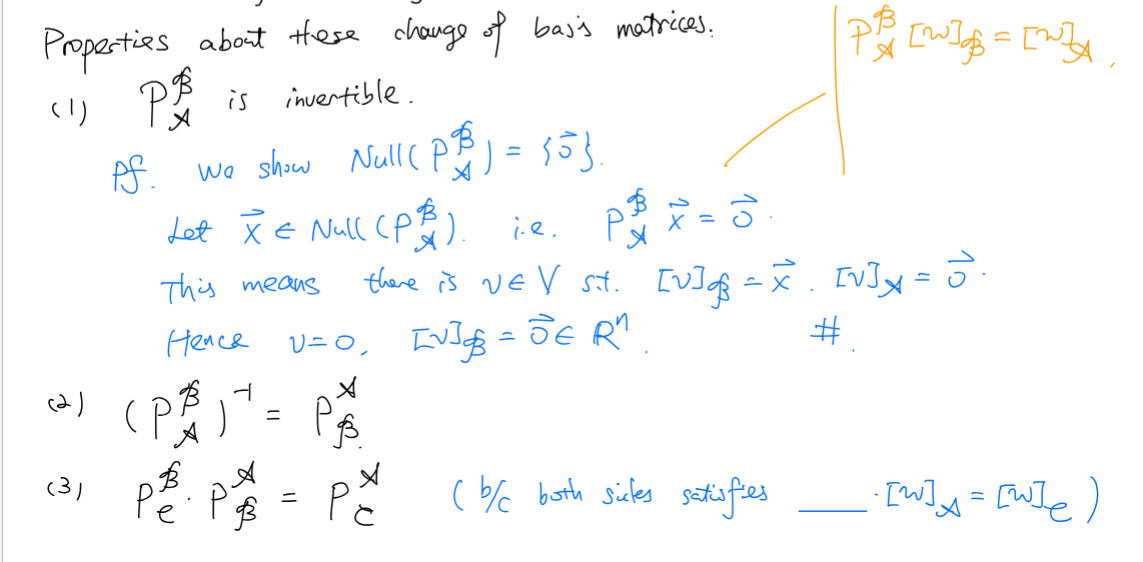 Properties about these change of basis matrices.
P_A^B [w]_B = [w]_A.
(1) P_A^B is invertible.
Pf. We show Null(P_A^B) = {0⃗}.
Let x⃗ ∈ Null(P_A^B). i.e. P_A^B x⃗ = 0⃗.
This means there is v ∈ V s.t. [v]_B = x⃗. [v]_A = 0⃗.
Hence v=0, [v]_B = 0⃗ ∈ R^n. #.
(2) (P_A^B)^-1 = P_B^A.
(3) P_C^B · P_B^A = P_C^A ( b/c both sides satisfies ____ · [w]_A = [w]_C )